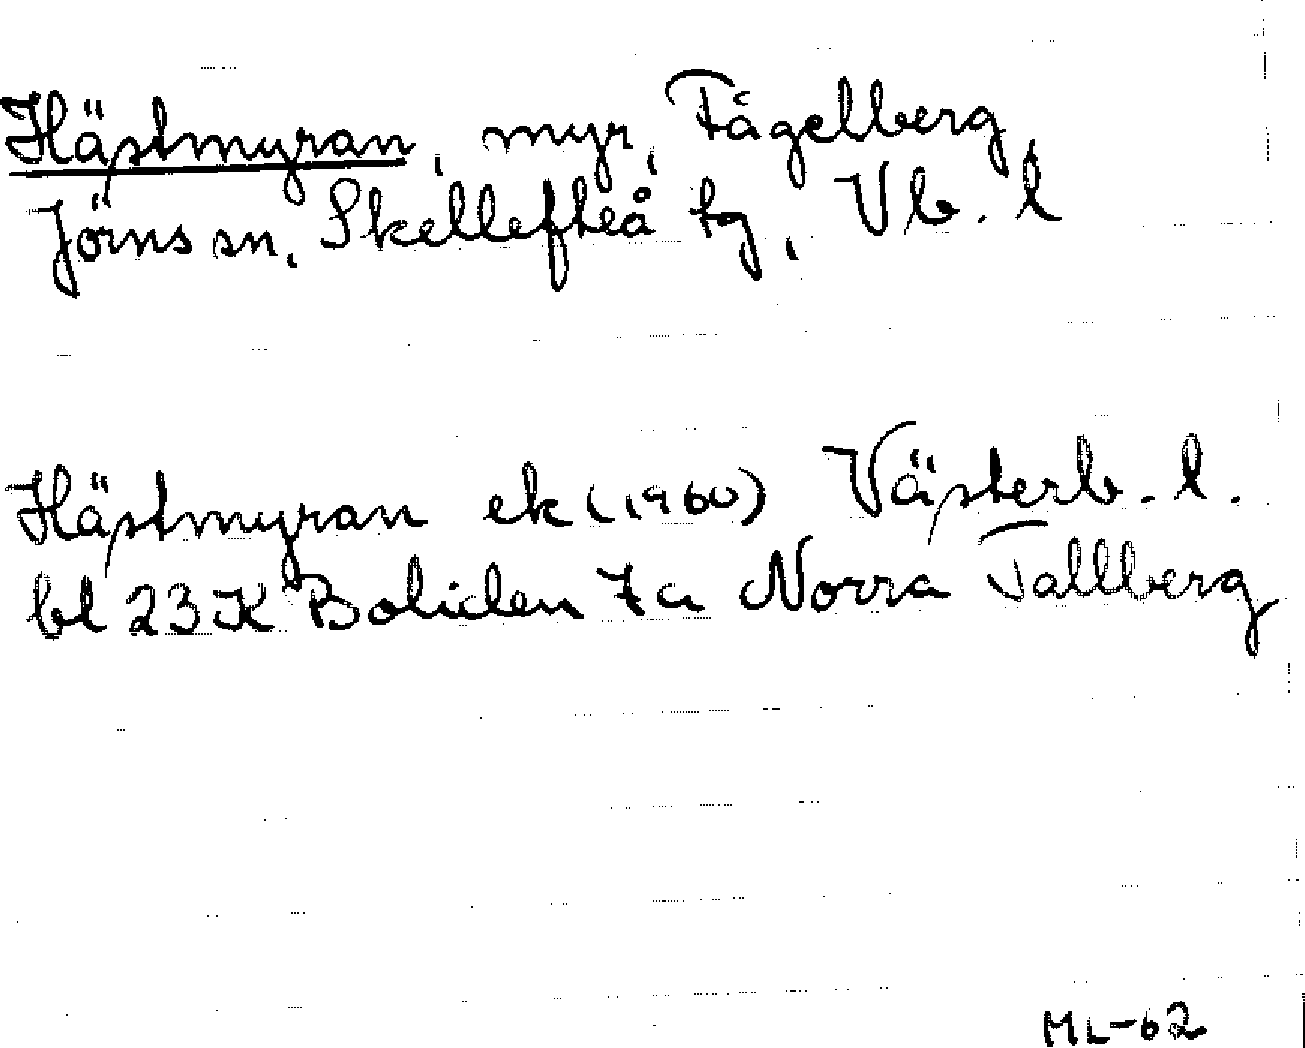 Hästmyran, myr, Fågelberg,
Jörns sn, Skellefteå tg, Vb. l
Hästmyran ek (1960) Västerb. l.
bl 23 K Boliden 7a Norra Tallberg
ML-62